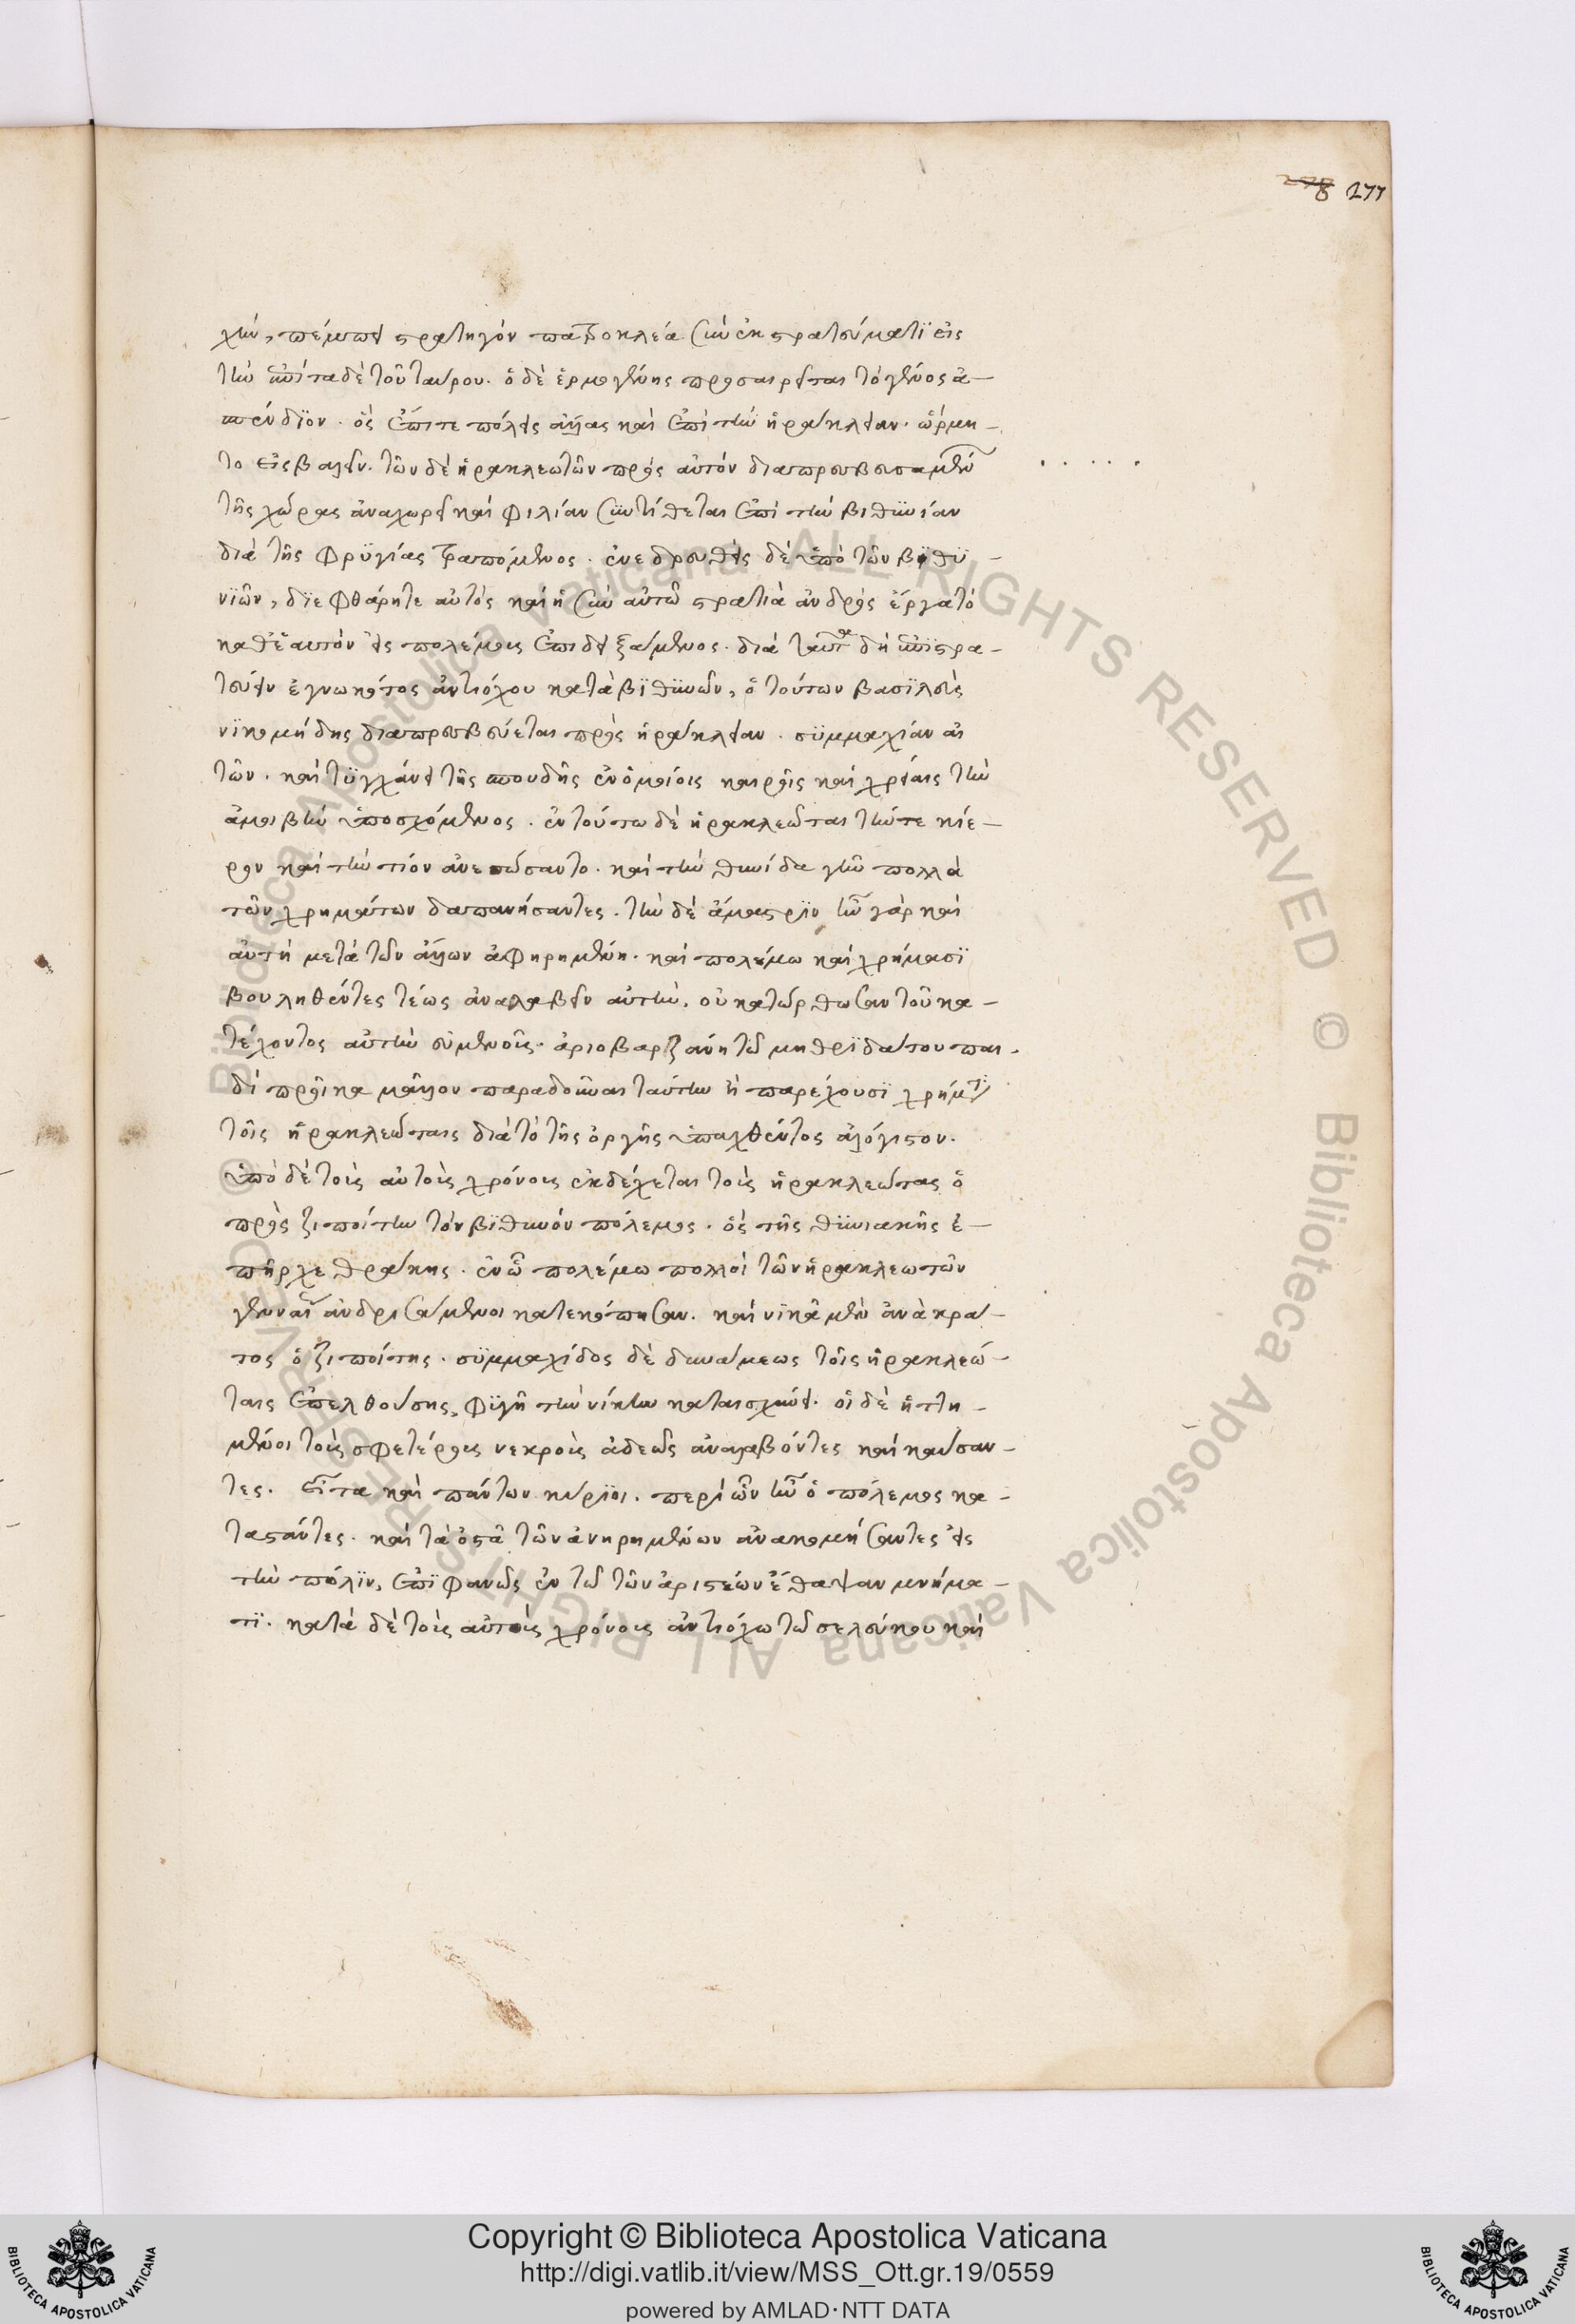 278 277
χὴν, πέμπει στρατηγὸν πατροκλέα σὺν ἐκστρατεύματϊ εἰς
τὴν ἐπίταδε τοῦ ταύρου. ὁ δὲ ἑρμογένης προσαιρεῖται τὸ γένος ἀ–
σπένδϊον. ὃς ἐπί τε πόλεις ἄλλας καὶ ἐπὶ τὴν ἡράκλειαν. ὥρμη–
το εἰσβαλεῖν. τῶν δὲ ἡρακλεωτῶν πρὸς αὐτὸν διαπρεσβευσαμένων
τῆς χώρας ἀναχωρεῖ καὶ φιλίαν συντίθεται ἐπὶ τὴν βιθϋνίαν
διὰ τῆς φρϋγίας τραπόμενος. ἐνεδρευθεὶς δὲ ὑπὸ τῶν βϊθϋ–
νϊῶν, δϊεφθάρη τε αὐτὸς καὶ ἡ σὺν αὐτῶ στρατιὰ ἀνδρὸς ἔργα τὸ
καθ' ἑαυτὸν εἰς πολέμους ἐπιδειξάμενος. διὰ ταῦτα δὴ ἐπϊστρα–
τεύειν ἐγνωκότος ἀντιόχου κατὰ βϊθϋνῶν, ὁ τούτων βασϊλεὺς
νϊκομήδης διαπρεσβεύεται πρὸς ἡράκλειαν. σϋμμαχίαν αἰ
τῶν. καὶ τϋγχάνει τῆς σπουδῆς ἐν ὁμοίοις καιροῖς καὶ χρείαις τὴν
ἀμοιβὴν ὑποσχόμενος. ἐν τούτω δὲ ἡρακλεῶται τήν τε κίε–
ρον καὶ τὴν τίον ἀνεσώσαντο. καὶ τὴν θυνίδα γῆν πολλὰ
τῶν χρημάτων δαπανήσαντες. τὴν δὲ ἄμαστρϊν ἦν γὰρ καὶ
αὐτὴ μετὰ τῶν ἄλλων ἀφηρημένη. καὶ πολέμω καὶ χρήμασϊ
βουληθέντες τέως ἀναλαβεῖν αὐτὴν. οὐ κατώρθωσαν τοῦ κα–
τέχοντος αὐτὴν εὐμενοῦς. ἀριοβαρζάνη τῶ μηθρϊδάτου παι.
δὶ προῖκα μᾶλλον παραδοῦναι ταύτην ἢ παρέχουσϊ χρήματα
τοῖς ἡρακλεώταις διὰ τὸ τῆς ὀργῆς ὑπαχθέντος ἀλόγιστον.
ὑπὸ δὲ τοὺς αὐτοὺς χρόνους ἐκδέχεται τοὺς ἡρακλεώτας ὁ
πρὸς ζιποίτην τὸν βϊθυνὸν πόλεμος. ὃς τῆς θϋνιακῆς ἐ–
πῆρχε θράκης. ἐν ὧ πολέμω πολλοὶ τῶν ἡρακλεωτῶν
γενναῖ ἀνδρισάμενοι κατεκόπησαν. καὶ νϊκᾶ μὲν ἀνὰ κρά–
τος ὁ ζιποίτης. σϋμμαχίδος δὲ δυνάμεως τοῖς ἡρακλεώ–
ταις ἐπελθούσης, φϋγῆ τὴν νίκην καταισχύνει. οἱ δὲ ἡττη–
μένοι τοὺς σφετέρους νεκροὺς ἀδεῶς ἀναλαβόντες καὶ καύσαν–
τες. εἶτα καὶ πάντων κύρϊοι. περὶ ὧν ἦν ὁ πόλεμος κα–
ταστάντες. καὶ τὰ ὀστᾶ τῶν ἀνηρημένων ἀνακομήσαντες εἰς
τὴν πόλϊν, ἐπϊφανῶς ἐν τῶ τῶν ἀριστέων ἔθαψαν μνήμα–
τϊ. κατὰ δὲ τοὺς αὐτοὺς χρόνους ἀντιόχω τῶ σελεύκου καὶ
Copyright © Biblioteca Apostolica Vaticana
http://digi.vatlib.it/view/MSS_Ott.gr.19/0559
powered by AMLAD·NTT DATA